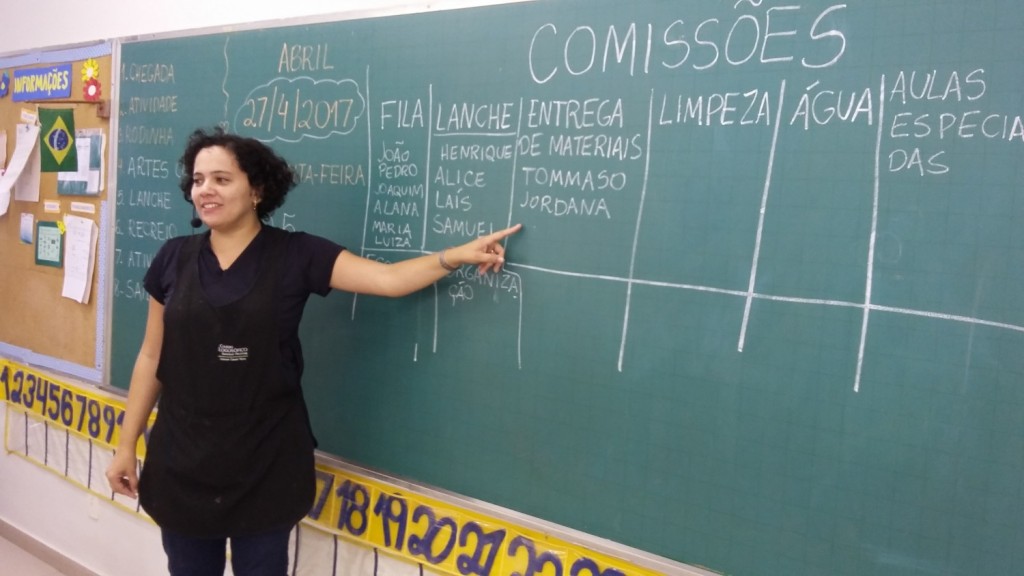 INFORMAÇÕES
1. CHEGADA
ATIVIDADE
RODINHA
4. ARTES
5. LANCHE
RECREIO
7.
ABRIL
27/4/2017
TA-FEIRA
5
COMISSÕES
FILA
JOÃO
PEDRO
JOAQUIM
ALANA
MARIA
LUIZA
LANCHE
HENRIQUE
ALICE
LAÍS
SAMUEL
ENTREGA
DE MATERIAIS
TOMMASO
JORDANA
LIMPEZA
ÁGUA
AULAS
ESPECIA
DAS
ORGANIZA
ÇÃO
1 2 3 4 5 6 7 8 9 1
17 18 19 20 21 22